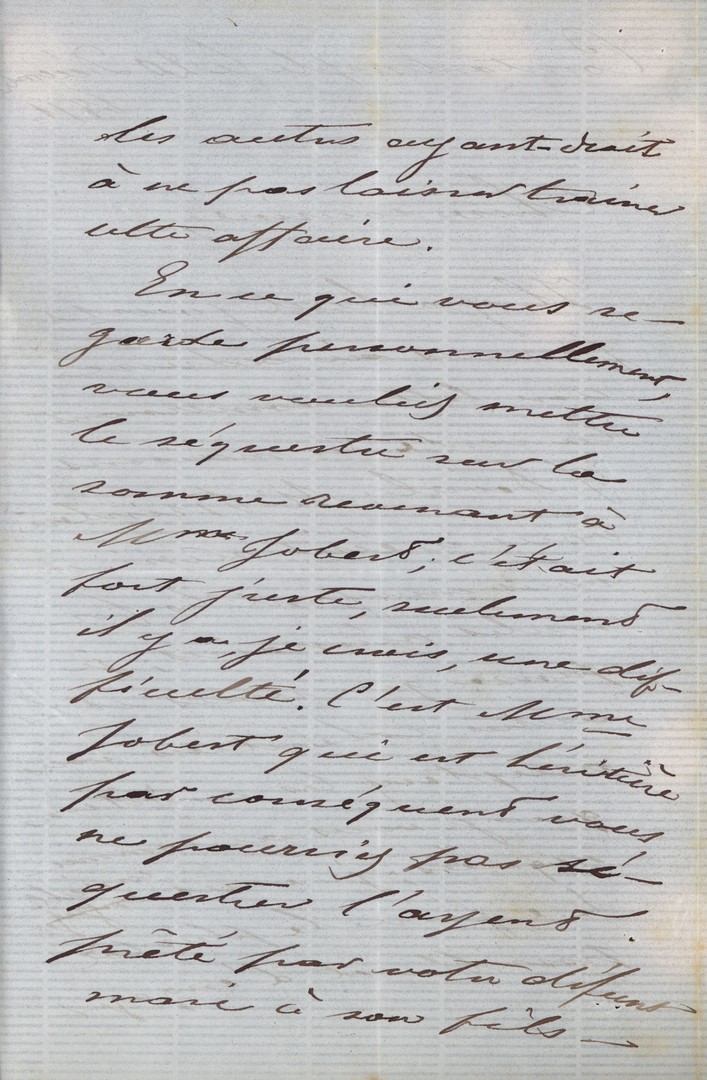 les autres ayant-droit
à ne pas laisser traîner
cette affaire.
En ce qui vous re-
garde personnellement,
vous vouliez mettre
le séquestre sur la
somme revenant à
Mme Jobert; c'était
fort juste, seulement
il y a, je crois, une dif-
ficulté. C'est Mme
Jobert qui est héritière
par conséquent vous
ne pourriez pas sé-
questrer l'argent
prêté par votre défunt
mari à son fils —